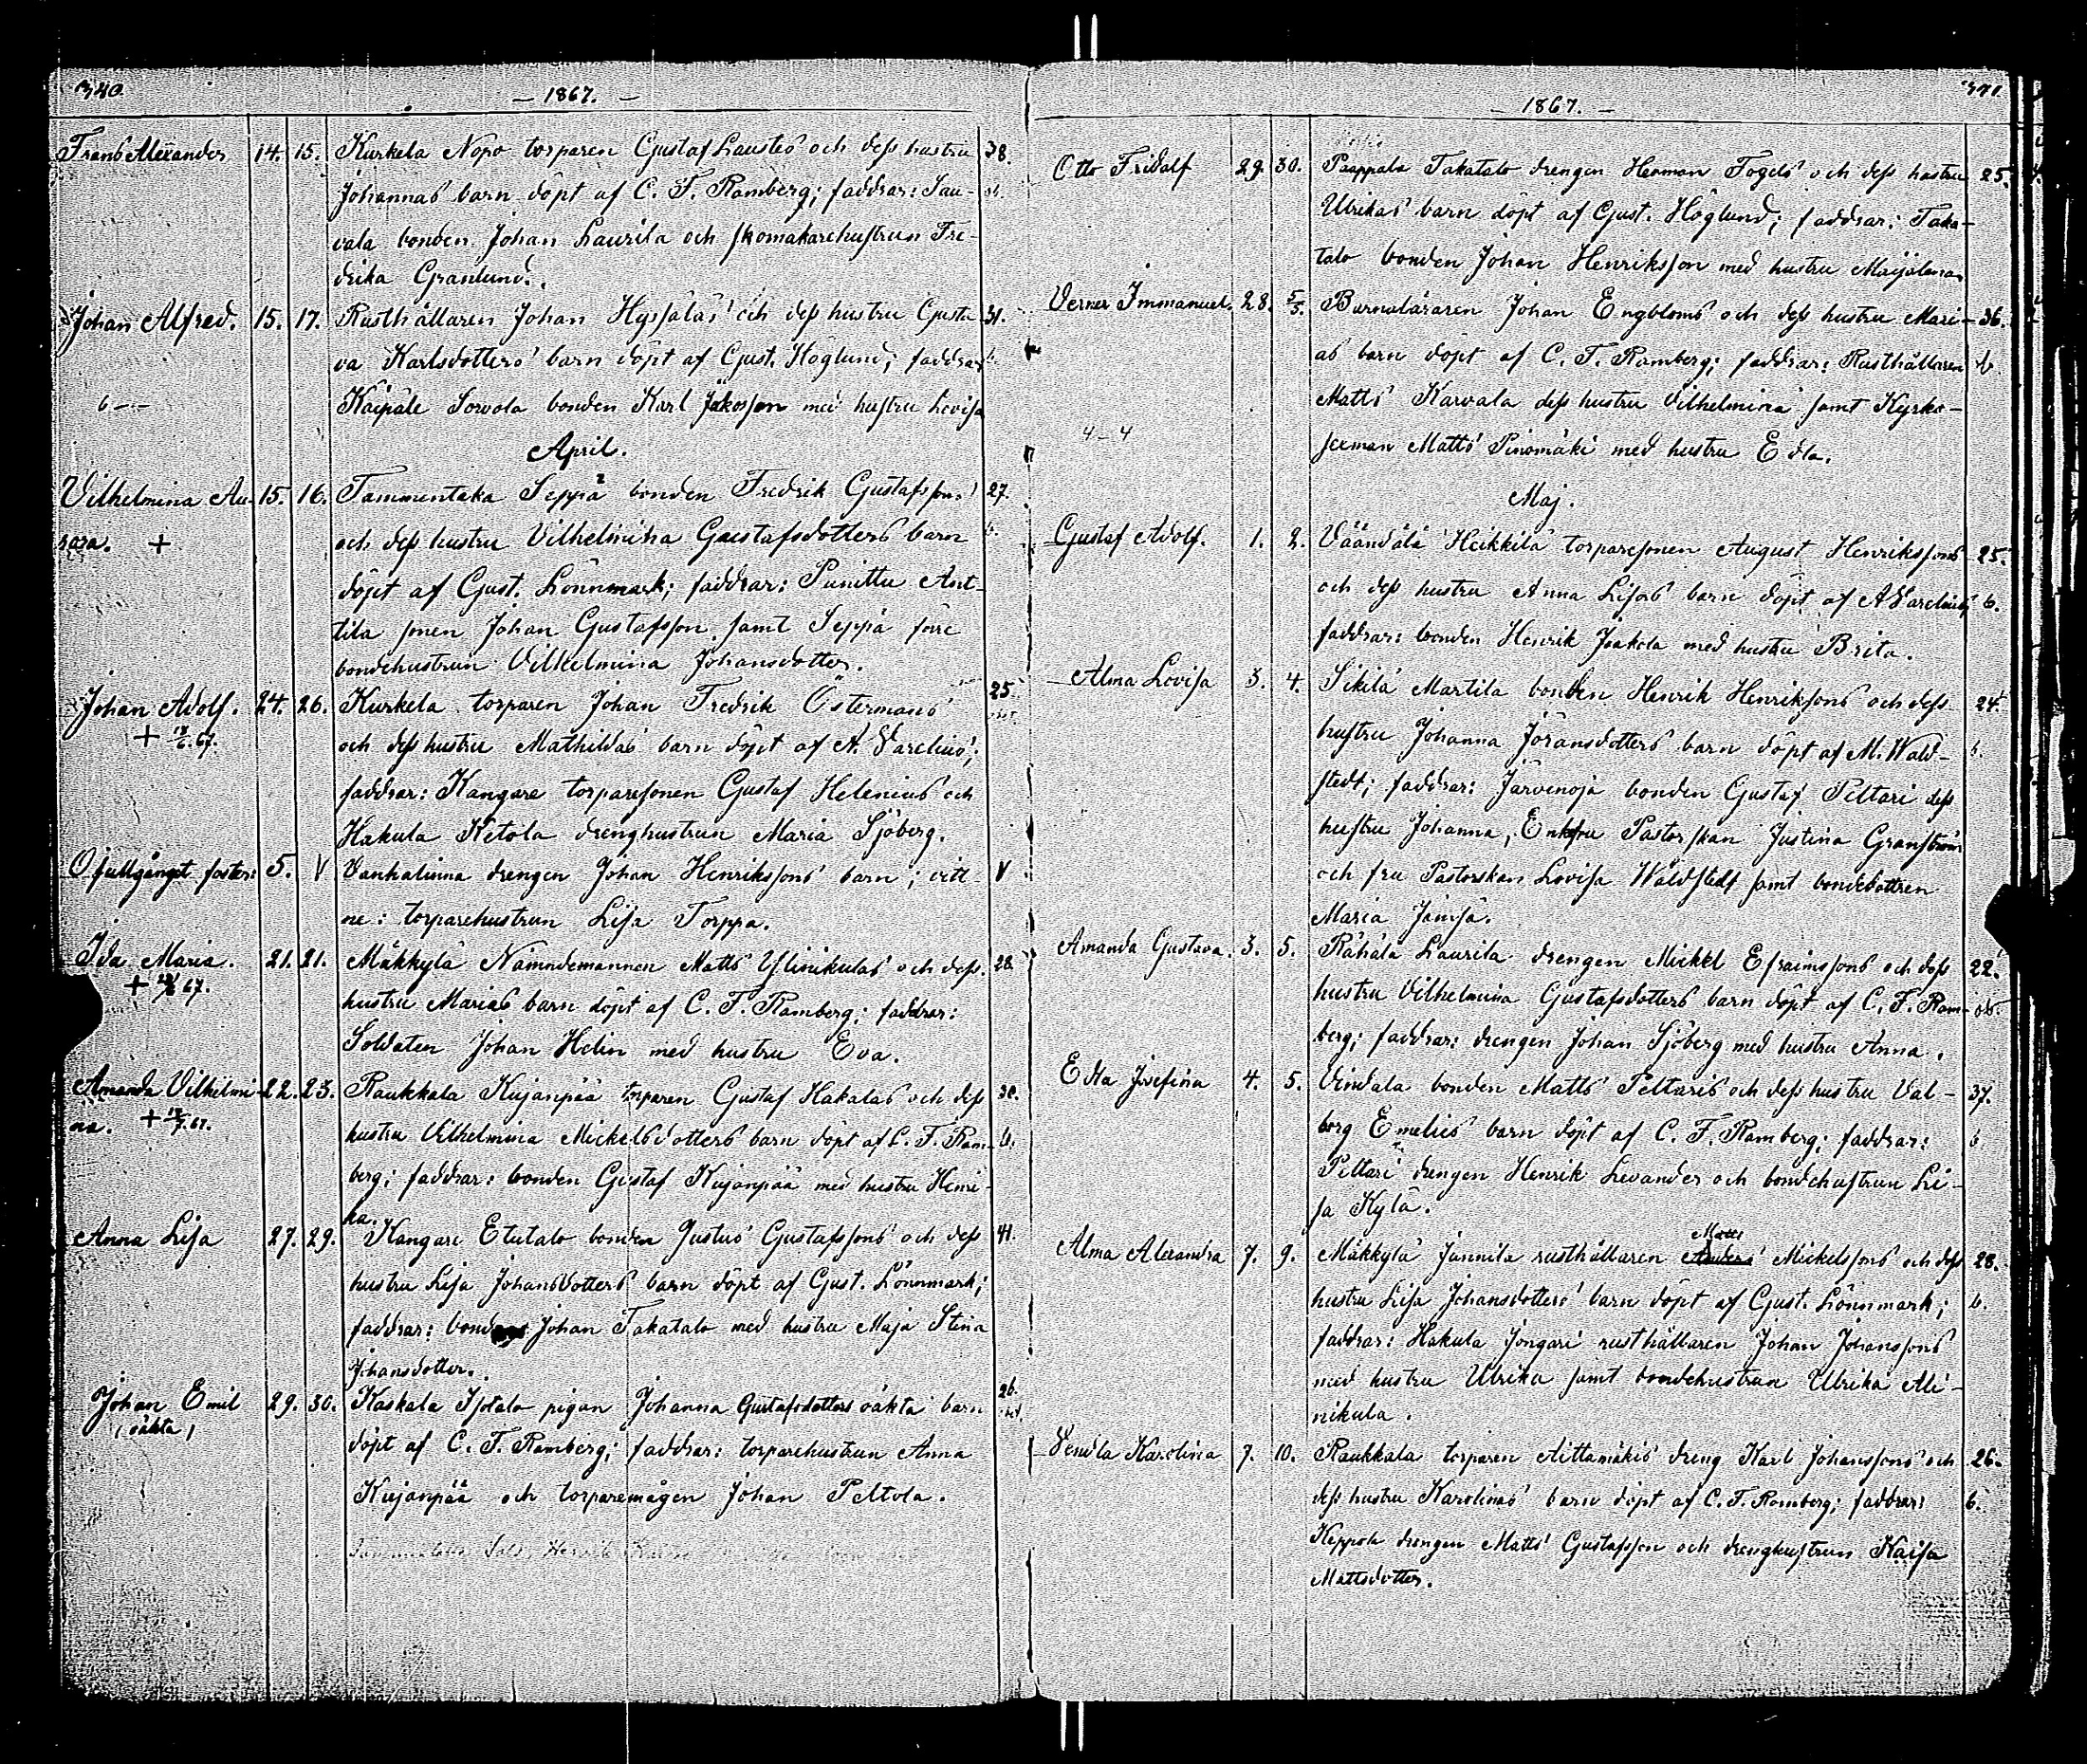 340.
— 1867. —
Frans Alexander 14. 15. Kurkela Nopo torparen Gustaf Laustes och dess hustru 38.
Johannas barn döpt af C. F. Ramberg; faddrar: Sau-
vala bonden Johan Laurila och skomakarehustrun Fre-
drika Granlund.
Johan Alfred. 15. 17. Rusthållaren Johan Hyssäläs och dess hustru Gusta- 31.
va Karlsdotters barn döpt af Gust. Höglund; faddrar b.
6 — Käipälä Sorvola bonden Karl Jakosson med hustru Lovisa
April.
Vilhelmina Au- 15. 16. Tammentaka Seppä bonden Fredrik Gustafssons 27.
rora. + och dess hustru Vilhelmina Gustafsdotters barn b.
döpt af Gust. Lönnmark; faddrar: Punittu Ant-
tila sonen Johan Gustafsson samt Seppä förre
bondehustrun Vilhelmina Johansdotter.
Johan Adolf. 24. 26. Kurkela torparen Johan Fredrik Östermans 25.
och dess hustru Mathildas barn döpt af A. Varelius;
faddrar: Kangare torparesonen Gustaf Helenius och
Hakula Ketola drenghustrun Maria Sjöberg.
Ofullgånget foster: 5. V Vanhalinna drengen Johan Henrikssons barn; vitt- V
ne: torparehustrun Lisa Torppa.
Ida Maria. 21. 21. Mäkkylä Nämndemannen Matts Ylinikulas och dess 28.
hustru Marias barn döpt af C. F. Ramberg; faddrar:
Soldaten Johan Helin med hustru Eva.
Amanda Vilhelmi- 22. 23. Raukkala Kujanpää torparen Gustaf Hakalas och dess 30.
na. hustru Vilhelmina Mickelsdotters barn döpt af C. F. Ram- b.
berg; faddrar: bonden Gustaf Kujanpää med hustru Henri-
ka.
Anna Lisa 27. 29. Kangare Etutalo bonden Justus Gustafssons och dess 41.
hustru Lisa Johansdotters barn döpt af Gust. Lönnmark;
faddrar: bonden Johan Takatalo med hustru Maja Stina
Johansdotter.
Johan Emil 29. 30. Kaskala Isotalo pigan Johanna Gustafsdotters oäkta barn 26.
(oäkta) döpt af C. F. Ramberg; faddrar: torparehustrun Anna
Kujanpää och torparemågen Johan Peltola.
341.
— 1867. —
Otto Fridolf 29. 30. Paappala Takatalo drengen Herman Fogels och dess hustru 25.
Ulrikas barn döpt af Gust. Höglund; faddrar: Taka-
talo bonden Johan Henriksson med hustru Maijalena.
Verner Immanuel. 28. 5/5. Barnaläraren Johan Engbloms och dess hustru Mari- 36.
as barn döpt af C. F. Ramberg; faddrar: Rusthållaren b.
Matts Karvala dess hustru Vilhelmina samt Kyrko-
4 – 4 sexman Matts Pinomäki med hustru Edla.
Maj.
Gustaf Adolf. 1. 2. Väändälä Heikkilä torparesonen August Henrikssons 25.
och dess hustru Anna Lisas barn döpt af A Varelius; b.
faddrar: bonden Henrik Jaakola med hustru Brita.
Alma Lovisa 3. 4. Sikilä Martila bonden Henrik Henrikssons och dess 24.
hustru Johanna Jöransdotters barn döpt af M. Wald- b.
stedt; faddrar: Järvenoja bonden Gustaf Peltari dess
hustru Johanna, Enkefru Pastorskan Justina Granström
och fru Pastorskan Lovisa Waldstedt samt bondedottren
Maria Jämsä.
Amanda Gustava. 3. 5. Rähälä Laurila drengen Mickel Efraimssons och dess 22.
hustru Vilhelmina Gustafsdotters barn döpt af C. F. Ram-
berg; faddrar: drengen Johan Sjöberg med hustru Anna.
Edla Josefina 4. 5. Vindala bonden Matts Peltaris och dess hustru Val- 37.
borg Emelies barn döpt af C. F. Ramberg; faddrar: b
Peltari drengen Henrik Levander och bondehustrun Li-
sa Kylä.
Alma Alexandra 7. 9. Mäkkylä Jannila rusthållaren Anders Matts Mickelssons och dess 28.
hustru Lisa Johansdotters barn döpt af Gust. Lönnmark; b.
faddrar: Hakula Jöngari rusthållaren Johan Johanssons
med hustru Ulrika samt bondehustrun Ulrika Ali-
nikula.
Vendla Karolina 7. 10. Raukkala torparen Aittamäkis dreng Karl Johanssons och 26.
dess hustru Karolinas barn döpt af C. F. Ramberg; faddrar: b.
drengen Matts Gustafsson och drenghustrun Kaisa
Mattsdotter.